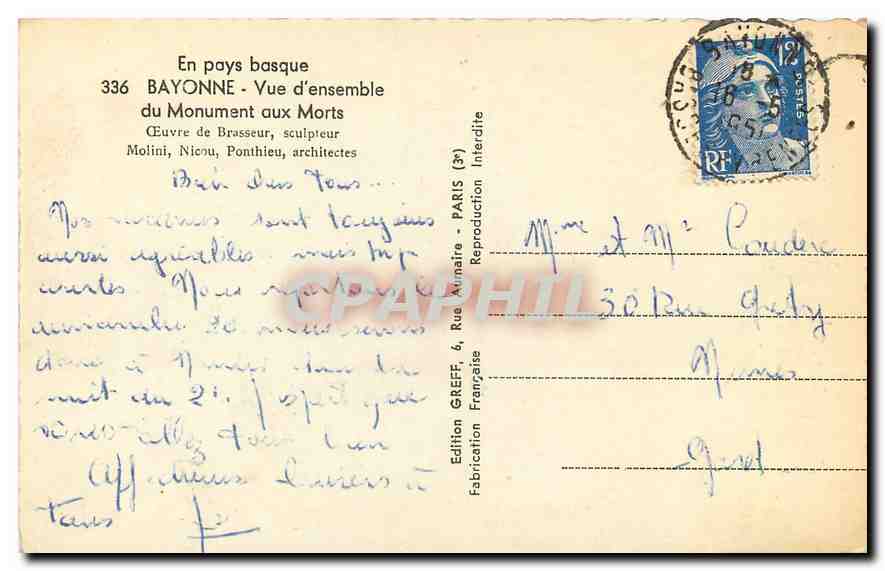 En pays basque
336 BAYONNE - Vue d'ensemble
du Monument aux Morts
Œuvre de Brasseur, sculpteur
Molini, Nicou, Ponthieu, architectes
tous ...
Nos sont toujours
aussi agréables mais trop
Nous le
dimanche 20 nous serons
donc à Nimes
nuit du J'espère que
vous allez tous bien
Affectueux baisers à
tous
Edition GREFF, 6, Rue Aumaire - PARIS (3e)
Fabrication Française Reproduction Interdite
12F
POSTES
RF
BAYONNE
18
16 - 5
Mme et Mr Couderc
30 Rue
Nimes
Gard
CPAPHIL